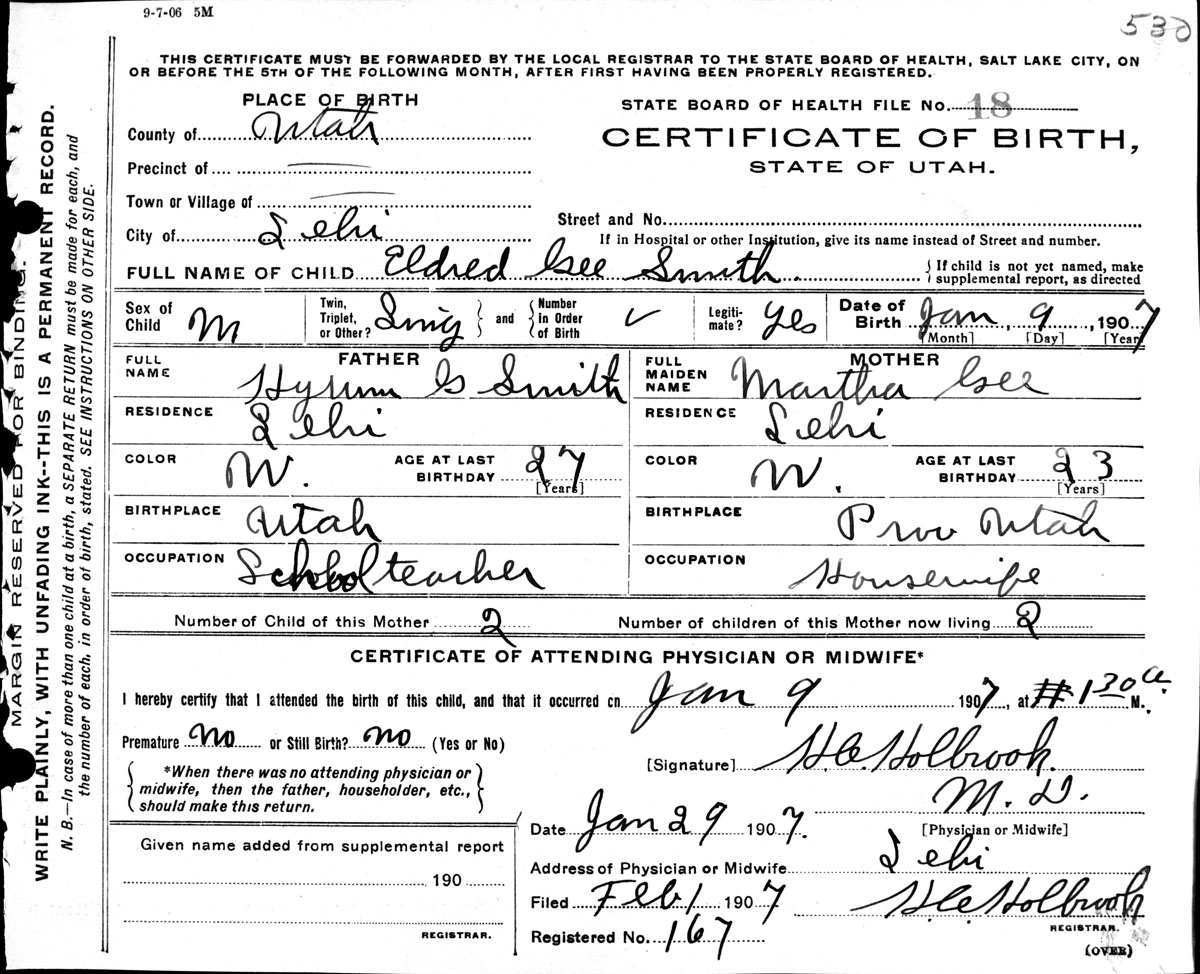 9-7-06 5M
530
THIS CERTIFICATE MUST BE FORWARDED BY THE LOCAL REGISTRAR TO THE STATE BOARD OF HEALTH, SALT LAKE CITY, ON
OR BEFORE THE 5TH OF THE FOLLOWING MONTH, AFTER FIRST HAVING BEEN PROPERLY REGISTERED.
PLACE OF BIRTH
STATE BOARD OF HEALTH FILE No. 18
County of Utah
CERTIFICATE OF BIRTH,
STATE OF UTAH.
Precinct of
Town or Village of
Street and No.
City of Lehi
If in Hospital or other Institution, give its name instead of Street and number.
FULL NAME OF CHILD Eldred Gee Smith. { If child is not yet named, make
supplemental report, as directed
Sex of Child M
Twin, Triplet, or Other? Sing } and { Number in Order of Birth ✓
Legitimate? Yes
Date of Birth Jan 9, 1907
[Month] [Day] [Year]
FATHER
FULL NAME Hyrum G Smith
MOTHER
FULL MAIDEN NAME Martha Gee
RESIDENCE Lehi
RESIDENCE Lehi
COLOR W. AGE AT LAST BIRTHDAY 27 [Years]
COLOR W. AGE AT LAST BIRTHDAY 23 [Years]
BIRTHPLACE Utah
BIRTHPLACE Provo Utah
OCCUPATION School teacher
OCCUPATION Housewife
Number of Child of this Mother 2 Number of children of this Mother now living 2
CERTIFICATE OF ATTENDING PHYSICIAN OR MIDWIFE*
I hereby certify that I attended the birth of this child, and that it occurred on Jan 9 1907, at 1 30 a. M.
Premature No or Still Birth? No (Yes or No)
[Signature] H.C. Holbrook
M. D.
[Physician or Midwife]
{ *When there was no attending physician or
midwife, then the father, householder, etc.,
should make this return. }
Date Jan 29 1907.
Given name added from supplemental report
190
REGISTRAR.
Address of Physician or Midwife Lehi
Filed Feb 1 1907 H.C. Holbrook
REGISTRAR.
Registered No. 167
(OVER)
MARGIN RESERVED FOR BINDING.
WRITE PLAINLY, WITH UNFADING INK--THIS IS A PERMANENT RECORD.
N. B.—In case of more than one child at a birth, a SEPARATE RETURN must be made for each, and
the number of each, in order of birth, stated. SEE INSTRUCTIONS ON OTHER SIDE.